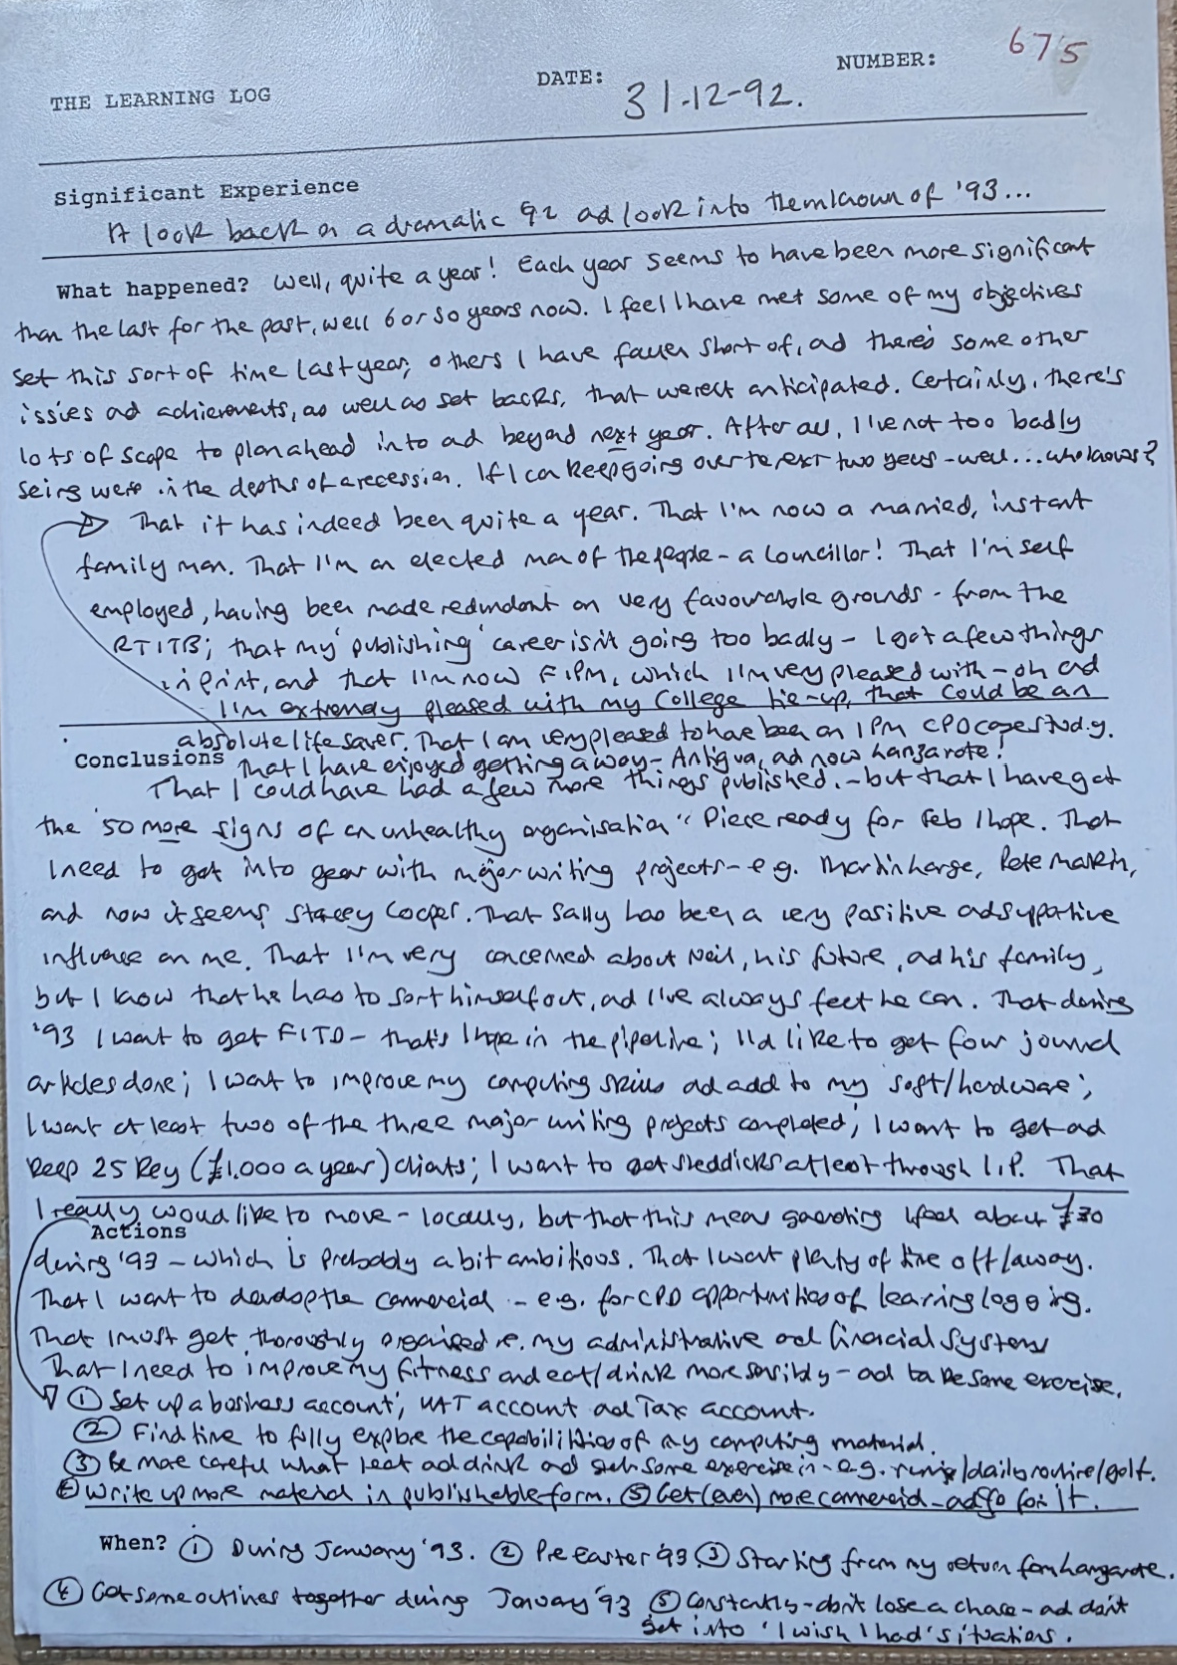 675
THE LEARNING LOG DATE: 31-12-92. NUMBER:
Significant Experience
A look back on a dramatic 92 ad look into the unknown of '93...
What happened? Well, quite a year! Each year seems to have been more significant
than the last for the past, well 6 or so years now. I feel I have met some of my objectives
set this sort of time last year; others I have fallen short of, ad there's some other
issues ad achievements, as well as set backs, that weren't anticipated. Certainly, there's
lots of scope to plan ahead into ad beyond next year. After all, I've not too badly
seing we're in the depths of a recession. If I can keep going over the next two years - well... who knows?
That it has indeed been quite a year. That I'm now a married, instant
family man. That I'm an elected man of the people - a Councillor! That I'm self
employed, having been made redundant on very favourable grounds - from the
RTITB; that my 'publishing' career isn't going too badly - I got a few things
in print, and that I'm now FIPM, which I'm very pleased with - oh ad
I'm extremely pleased with my College tie-up, that could be an
absolute life saver. That I am very pleased to have been an IPM CPD case study.
Conclusions That I have enjoyed getting away - Antigua, ad now Lanzarote!
That I could have had a few more things published. - but that I have got
the '50 more signs of an unhealthy organisation" piece ready for Feb I hope. That
I need to get into gear with major writing projects - e.g. Martin Large, Pete Makin,
and now it seems Stacey Cooper. That Sally has been a very positive ad supportive
influence on me. That I'm very concerned about Neil, his future, ad his family,
but I know that he has to sort himself out, ad I've always felt he can. That during
'93 I want to get FITD - that's I hope in the pipeline; I'd like to get four journal
articles done; I want to improve my computing skills ad add to my 'soft/hardware';
I want at least two of the three major writing projects completed; I want to get ad
keep 25 key (£1,000 a year) clients; I want to get Sleddicks at least through I.I.P. That
I really would like to move - locally, but that this means generating I feel about £30
Actions
during '93 - which is probably a bit ambitious. That I want plenty of time off/away.
That I want to develop the commercial - e.g. for CPD opportunities of learning logging.
That I must get thoroughly organised re. my administrative ad financial systems
That I need to improve my fitness and eat/drink more sensibly - ad take some exercise.
① Set up a business account; VAT account ad Tax account.
② Find time to fully explore the capabilities of my computing material.
③ Be more careful what I eat ad drink ad get some exercise in - e.g. running/daily routine/golf.
④ Write up more material in publishable form. ⑤ Get (even) more commercial - ad go for it.
When? ① During January '93. ② Pre Easter '93 ③ Starting from my return from Lanzarote.
④ Get some outlines together during January '93 ⑤ Constantly - don't lose a chance - ad don't
get into 'I wish I had' situations.